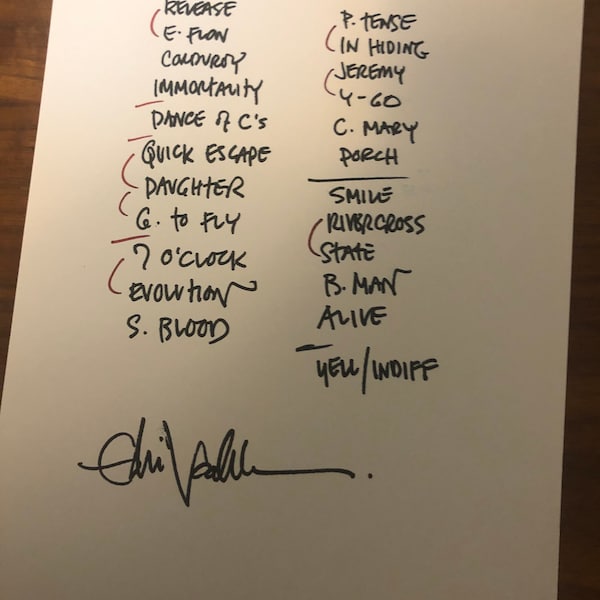 RELEASE
E. FLOW
CORDUROY
IMMORTALITY
DANCE OF C'S
QUICK ESCAPE
DAUGHTER
G. to FLY
7 O'CLOCK
EVOLUTION
S. BLOOD
P. TENSE
IN HIDING
JEREMY
Y-GO
C. MARY
PORCH
SMILE
RIVERCROSS
STATE
B. MAN
ALIVE
YELL/INDIFF